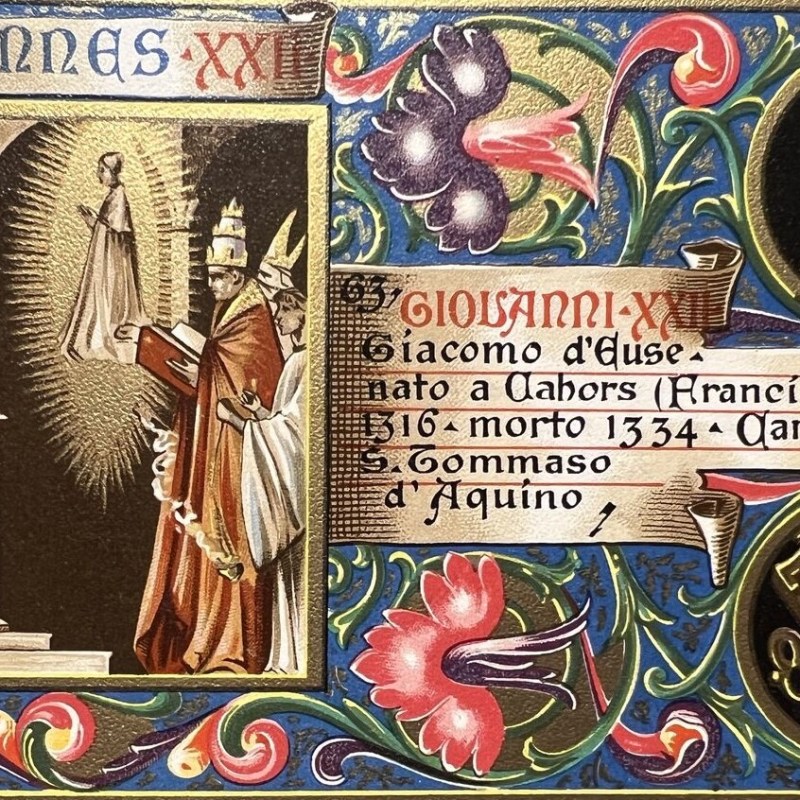 NNES·XXII
63, GIOVANNI·XXII
Giacomo d'Euse
nato a Cahors (Franci
1316 · morto 1334 · Can
S. Tommaso
d'Aquino,
8